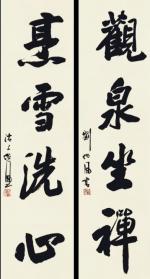 觀泉坐禪
烹雪洗心